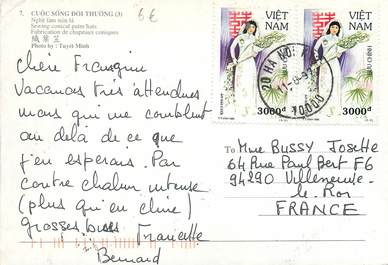 7. CUỘC SỐNG ĐỜI THƯỜNG (3)
Nghề làm nón lá
Sewing conical palm hats
Fabrication de chapeaux coniques
織葉笠
Photo by : Tuyết Minh
6€
VIỆT NAM
3000đ
VIỆT NAM
3000đ
20 HA NOI
10000
Chère
Vacances très attendues
mais qui me comblent
au delà de ce que
j'en esperais. Par
contre chaleur intense
(plus qu'en Chine)
Grosses bises Francette
Bernard
To Mme BUSSY Josette
64 Rue Paul Bert F6
94290 Villeneuve-
le-Roi
FRANCE